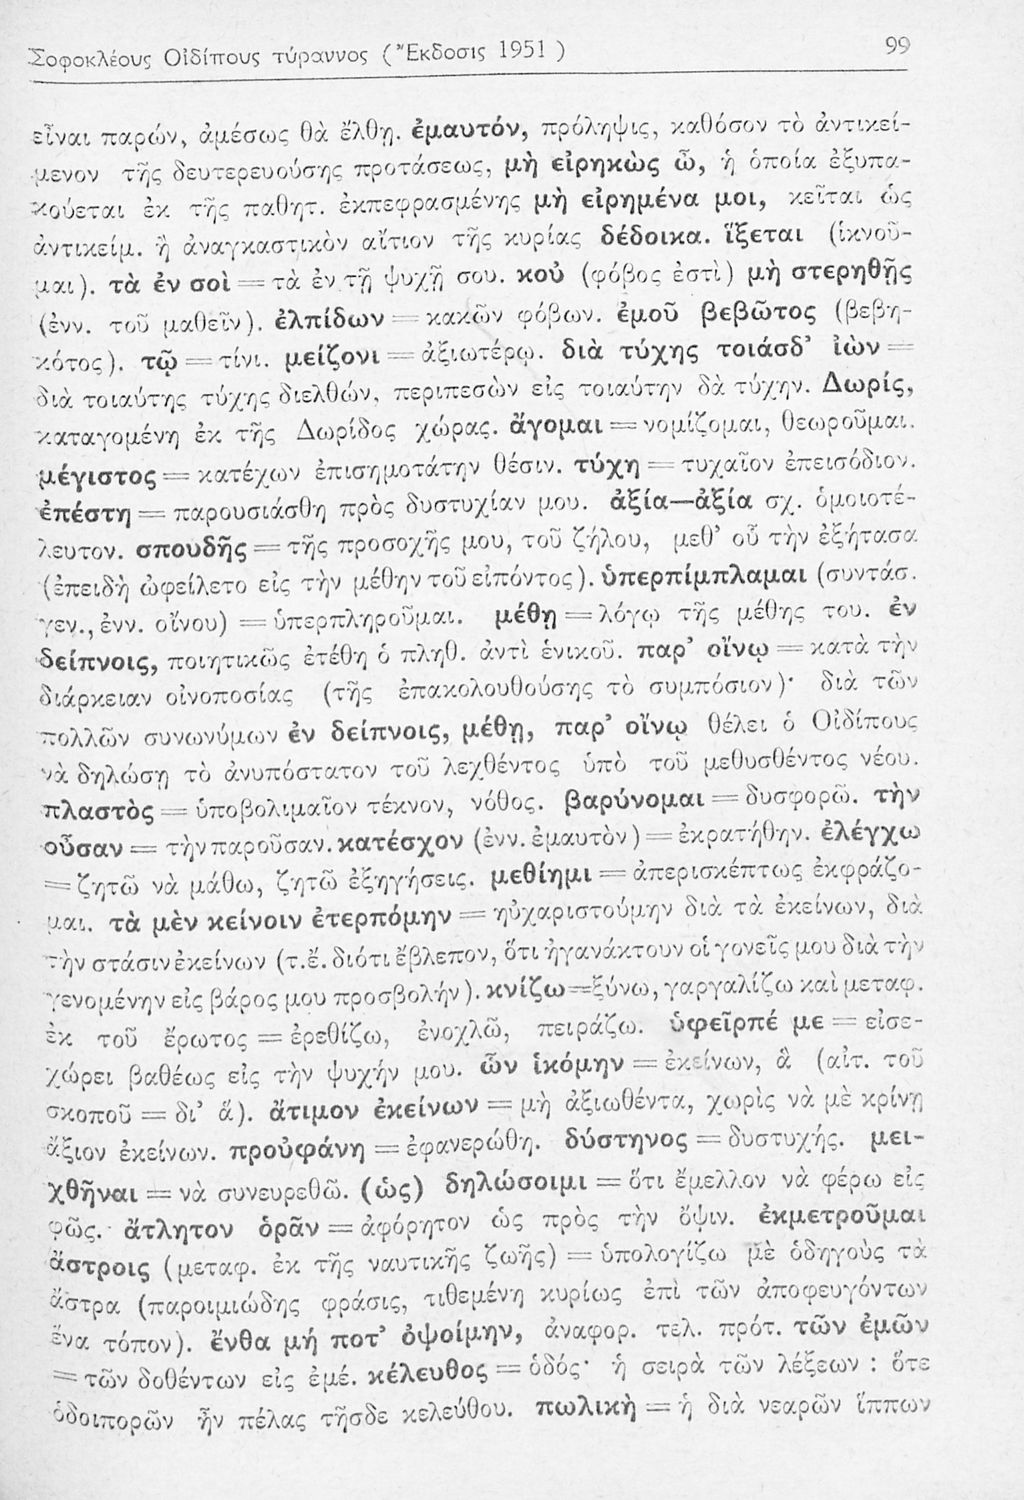 Σοφοκλέους Οἰδίπους τύραννος (Ἔκδοσις 1951)
99
εἶναι παρών, ἀμέσως θὰ ἔλθῃ. ἐμαυτόν, πρόληψις, καθόσον τὸ ἀντικεί-
μενον τῆς δευτερευούσης προτάσεως, μὴ εἰρηκὼς ὦ, ἡ ὁποία ἐξυπα-
κούεται ἐκ τῆς παθητ. ἐκπεφρασμένης μὴ εἰρημένα μοι, κεῖται ὡς
ἀντικείμ. ἢ ἀναγκαστικὸν αἴτιον τῆς κυρίας δέδοικα. ἵξεται (ἱκνοῦ-
μαι). τὰ ἐν σοὶ = τὰ ἐν τῇ ψυχῇ σου. κοὐ (φόβος ἐστὶ) μὴ στερηθῇς
(ἐνν. τοῦ μαθεῖν). ἐλπίδων = κακῶν φόβων. ἐμοῦ βεβῶτος (βεβη-
κότος). τῷ = τίνι. μείζονι = ἀξιωτέρῳ. διὰ τύχης τοιάσδ' ἰὼν =
διὰ τοιαύτης τύχης διελθών, περιπεσὼν εἰς τοιαύτην δὰ τύχην. Δωρίς,
καταγομένη ἐκ τῆς Δωρίδος χώρας. ἄγομαι = νομίζομαι, θεωροῦμαι.
μέγιστος = κατέχων ἐπισημοτάτην θέσιν. τύχη = τυχαῖον ἐπεισόδιον.
ἐπέστη = παρουσιάσθη πρὸς δυστυχίαν μου. ἀξία—ἀξία σχ. ὁμοιοτέ-
λευτον. σπουδῆς = τῆς προσοχῆς μου, τοῦ ζήλου, μεθ' οὗ τὴν ἐξήτασα
(ἐπειδὴ ὠφείλετο εἰς τὴν μέθην τοῦ εἰπόντος). ὑπερπίμπλαμαι (συντάσ.
γεν., ἐνν. οἴνου) = ὑπερπληροῦμαι. μέθῃ = λόγῳ τῆς μέθης του. ἐν
δείπνοις, ποιητικῶς ἐτέθη ὁ πληθ. ἀντὶ ἑνικοῦ. παρ' οἴνῳ = κατὰ τὴν
διάρκειαν οἰνοποσίας (τῆς ἐπακολουθούσης τὸ συμπόσιον)· διὰ τῶν
πολλῶν συνωνύμων ἐν δείπνοις, μέθῃ, παρ' οἴνῳ θέλει ὁ Οἰδίπους
νὰ δηλώσῃ τὸ ἀνυπόστατον τοῦ λεχθέντος ὑπὸ τοῦ μεθυσθέντος νέου.
πλαστὸς = ὑποβολιμαῖον τέκνον, νόθος. βαρύνομαι = δυσφορῶ. τὴν
οὖσαν = τὴν παροῦσαν. κατέσχον (ἐνν. ἐμαυτὸν) = ἐκρατήθην. ἐλέγχω
= ζητῶ νὰ μάθω, ζητῶ ἐξηγήσεις. μεθίημι = ἀπερισκέπτως ἐκφράζο-
μαι. τὰ μὲν κείνοιν ἐτερπόμην = ηὐχαριστούμην διὰ τὰ ἐκείνων, διὰ
τὴν στάσιν ἐκείνων (τ.ἔ. διότι ἔβλεπον, ὅτι ἠγανάκτουν οἱ γονεῖς μου διὰ τὴν
γενομένην εἰς βάρος μου προσβολήν). κνίζω = ξύνω, γαργαλίζω καὶ μεταφ.
ἐκ τοῦ ἔρωτος = ἐρεθίζω, ἐνοχλῶ, πειράζω. ὑφεῖρπέ με = εἰσε-
χώρει βαθέως εἰς τὴν ψυχήν μου. ὧν ἱκόμην = ἐκείνων, ἃ (αἰτ. τοῦ
σκοποῦ = δι' ἅ). ἄτιμον ἐκείνων = μὴ ἀξιωθέντα, χωρὶς νὰ μὲ κρίνῃ
ἄξιον ἐκείνων. προὐφάνη = ἐφανερώθη. δύστηνος = δυστυχής. μει-
χθῆναι = νὰ συνευρεθῶ. (ὡς) δηλώσοιμι = ὅτι ἔμελλον νὰ φέρω εἰς
φῶς. ἄτλητον ὁρᾶν = ἀφόρητον ὡς πρὸς τὴν ὄψιν. ἐκμετροῦμαι
ἄστροις (μεταφ. ἐκ τῆς ναυτικῆς ζωῆς) = ὑπολογίζω μὲ ὁδηγοὺς τὰ
ἄστρα (παροιμιώδης φράσις, τιθεμένη κυρίως ἐπὶ τῶν ἀποφευγόντων
ἕνα τόπον). ἔνθα μή ποτ' ὀψοίμην, ἀναφορ. τελ. πρότ. τῶν ἐμῶν
= τῶν δοθέντων εἰς ἐμέ. κέλευθος = ὁδός· ἡ σειρὰ τῶν λέξεων : ὅτε
ὁδοιπορῶν ἦν πέλας τῆσδε κελεύθου. πωλικὴ = ἡ διὰ νεαρῶν ἵππων